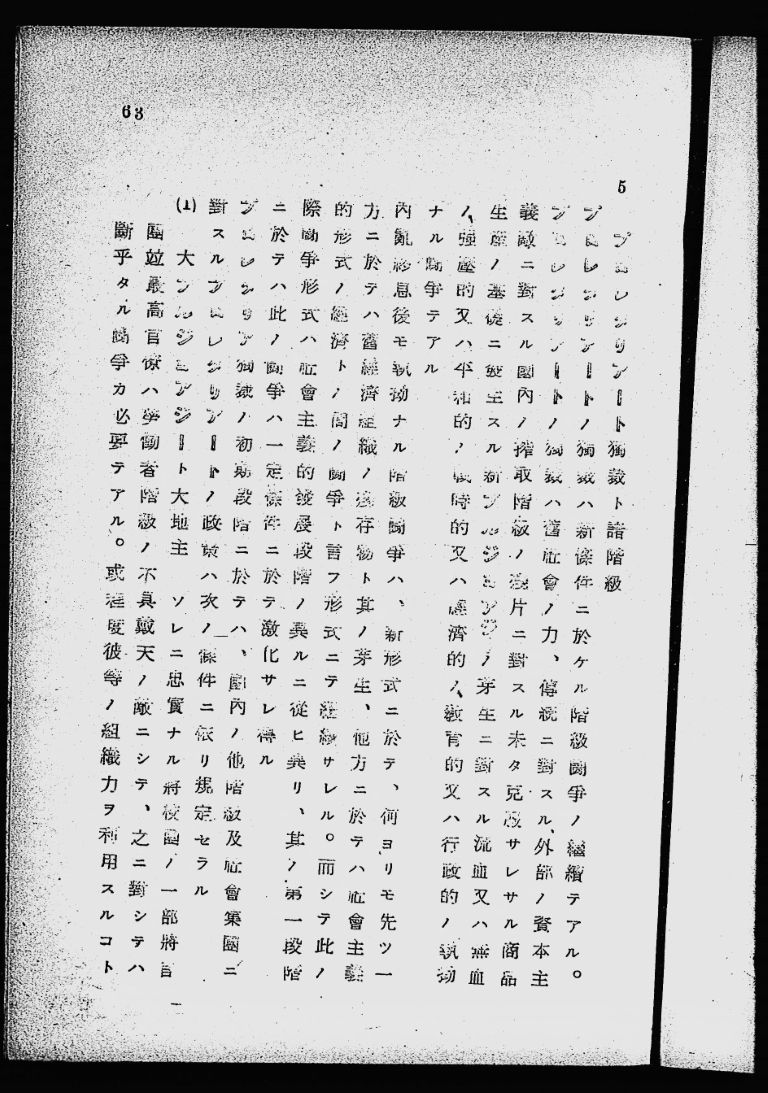 5
プロレタリアート獨裁ト諸階級
プロレタリアートノ獨裁ハ新條件ニ於ケル階級鬪爭ノ繼續テアル。
プロレタリアートノ獨裁ハ舊社會ノ力、傳統ニ對スル、外部ノ資本主
義敵ニ對スル國內ノ搾取階級ノ殘片ニ對スル未タ克服サレサル商品
生産ノ基礎ニ發生スル新ブルジョアジーノ芽生ニ對スル流血又ハ無血
ノ、强壓的又ハ平和的ノ、戰時的又ハ經濟的ノ、敎育的又ハ行政的ノ執拗
ナル鬪爭テアル
內亂終息後モ執拗ナル階級鬪爭ハ、新形式ニ於テ、何ヨリモ先ツ一
方ニ於テハ舊經濟組織ノ殘存物ト其ノ芽生、他方ニ於テハ社會主義
的形式ノ經濟トノ間ノ鬪爭ト言フ形式ニテ繼續サレル。而シテ此ノ
際鬪爭形式ハ社會主義的發展段階ノ異ルニ從ヒ異リ、其ノ第一段階
ニ於テハ此ノ鬪爭ハ一定條件ニ於テ激化サレ得ル
プロレタリア獨裁ノ初期段階ニ於テハ、國內ノ他階級及社會集團ニ
對スルプロレタリアートノ政策ハ次ノ條件ニ依リ規定セラル
(1) 大ブルジョアジート大地主 ソレニ忠實ナル將校團ノ一部將官
團竝最高官僚ハ勞働者階級ノ不具戴天ノ敵ニシテ、之ニ對シテハ
斷乎タル鬪爭カ必要テアル。或程度彼等ノ組織力ヲ利用スルコト
63